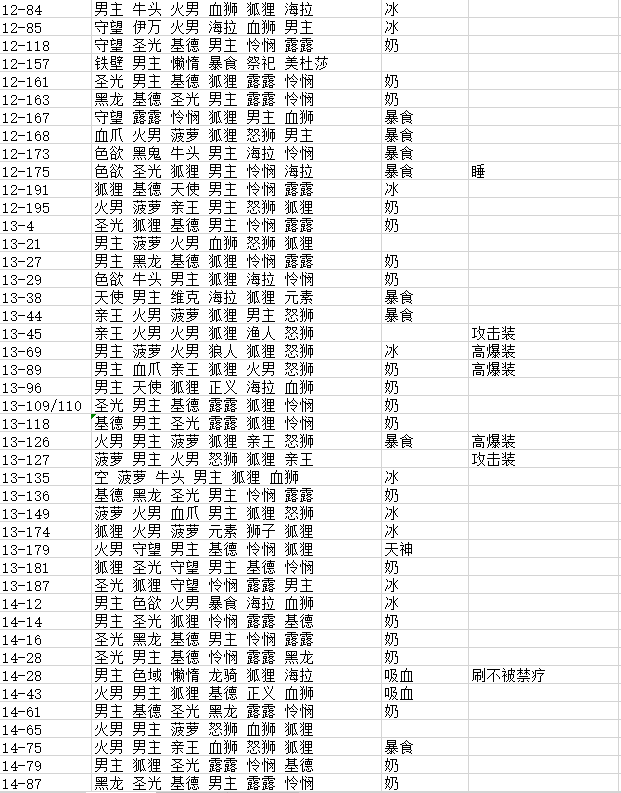 12-84 男主 牛头 火男 血狮 狐狸 海拉 冰
12-85 守望 伊万 火男 海拉 血狮 男主 冰
12-118 守望 圣光 基德 男主 怜悯 露露 奶
12-157 铁壁 男主 懒惰 暴食 祭祀 美杜莎
12-161 圣光 男主 基德 狐狸 露露 怜悯 奶
12-163 黑龙 基德 圣光 男主 露露 怜悯 奶
12-167 守望 露露 怜悯 狐狸 男主 血狮 暴食
12-168 血爪 火男 菠萝 狐狸 怒狮 男主 暴食
12-173 色欲 黑鬼 牛头 男主 海拉 怜悯 暴食
12-175 色欲 圣光 狐狸 男主 怜悯 海拉 暴食 睡
12-191 狐狸 基德 天使 男主 怜悯 露露 冰
12-195 火男 菠萝 亲王 男主 怒狮 狐狸 奶
13-4 圣光 狐狸 基德 男主 怜悯 露露 奶
13-21 男主 菠萝 火男 血狮 怒狮 狐狸
13-27 男主 黑龙 基德 狐狸 怜悯 露露 奶
13-29 色欲 牛头 男主 狐狸 海拉 怜悯 奶
13-38 天使 男主 维克 海拉 狐狸 元素 暴食
13-44 亲王 火男 菠萝 狐狸 男主 怒狮 暴食
13-45 亲王 火男 火男 狐狸 渔人 怒狮 攻击装
13-69 男主 菠萝 火男 狼人 狐狸 怒狮 冰 高爆装
13-89 男主 血爪 亲王 狐狸 火男 怒狮 奶 高爆装
13-96 男主 天使 狐狸 正义 海拉 血狮 奶
13-109/110 圣光 男主 基德 露露 狐狸 怜悯 奶
13-118 基德 男主 圣光 露露 狐狸 怜悯 奶
13-126 火男 男主 菠萝 狐狸 亲王 怒狮 暴食 高爆装
13-127 菠萝 男主 火男 怒狮 狐狸 亲王 攻击装
13-135 空 菠萝 牛头 男主 狐狸 血狮 冰
13-136 基德 黑龙 圣光 男主 怜悯 露露 奶
13-149 菠萝 火男 血爪 男主 狐狸 怒狮 冰
13-174 狐狸 火男 菠萝 元素 狮子 狐狸 冰
13-179 火男 守望 男主 基德 怜悯 狐狸 天神
13-181 狐狸 圣光 守望 男主 基德 怜悯 奶
13-187 圣光 狐狸 守望 怜悯 露露 男主 冰
14-12 男主 色欲 火男 暴食 海拉 血狮 冰
14-14 男主 圣光 狐狸 怜悯 露露 基德 奶
14-16 圣光 黑龙 基德 男主 怜悯 露露 奶
14-28 圣光 男主 基德 怜悯 露露 黑龙 奶
14-28 男主 色域 懒惰 龙骑 狐狸 海拉 吸血 刷不被禁疗
14-43 火男 男主 狐狸 基德 正义 血狮 吸血
14-61 男主 基德 圣光 黑龙 露露 怜悯 奶
14-65 火男 男主 菠萝 怒狮 血狮 狐狸
14-75 火男 男主 亲王 血狮 怒狮 狐狸 暴食
14-79 男主 狐狸 圣光 露露 怜悯 基德 奶
14-87 黑龙 圣光 基德 男主 露露 怜悯 奶